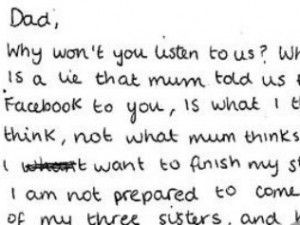 Dad,
Why won't you listen to us?
Is a lie that mum told us
Facebook to you, is what I
think, not what mum thinks
I want to finish my
I am not prepared to come
of my three sisters, and